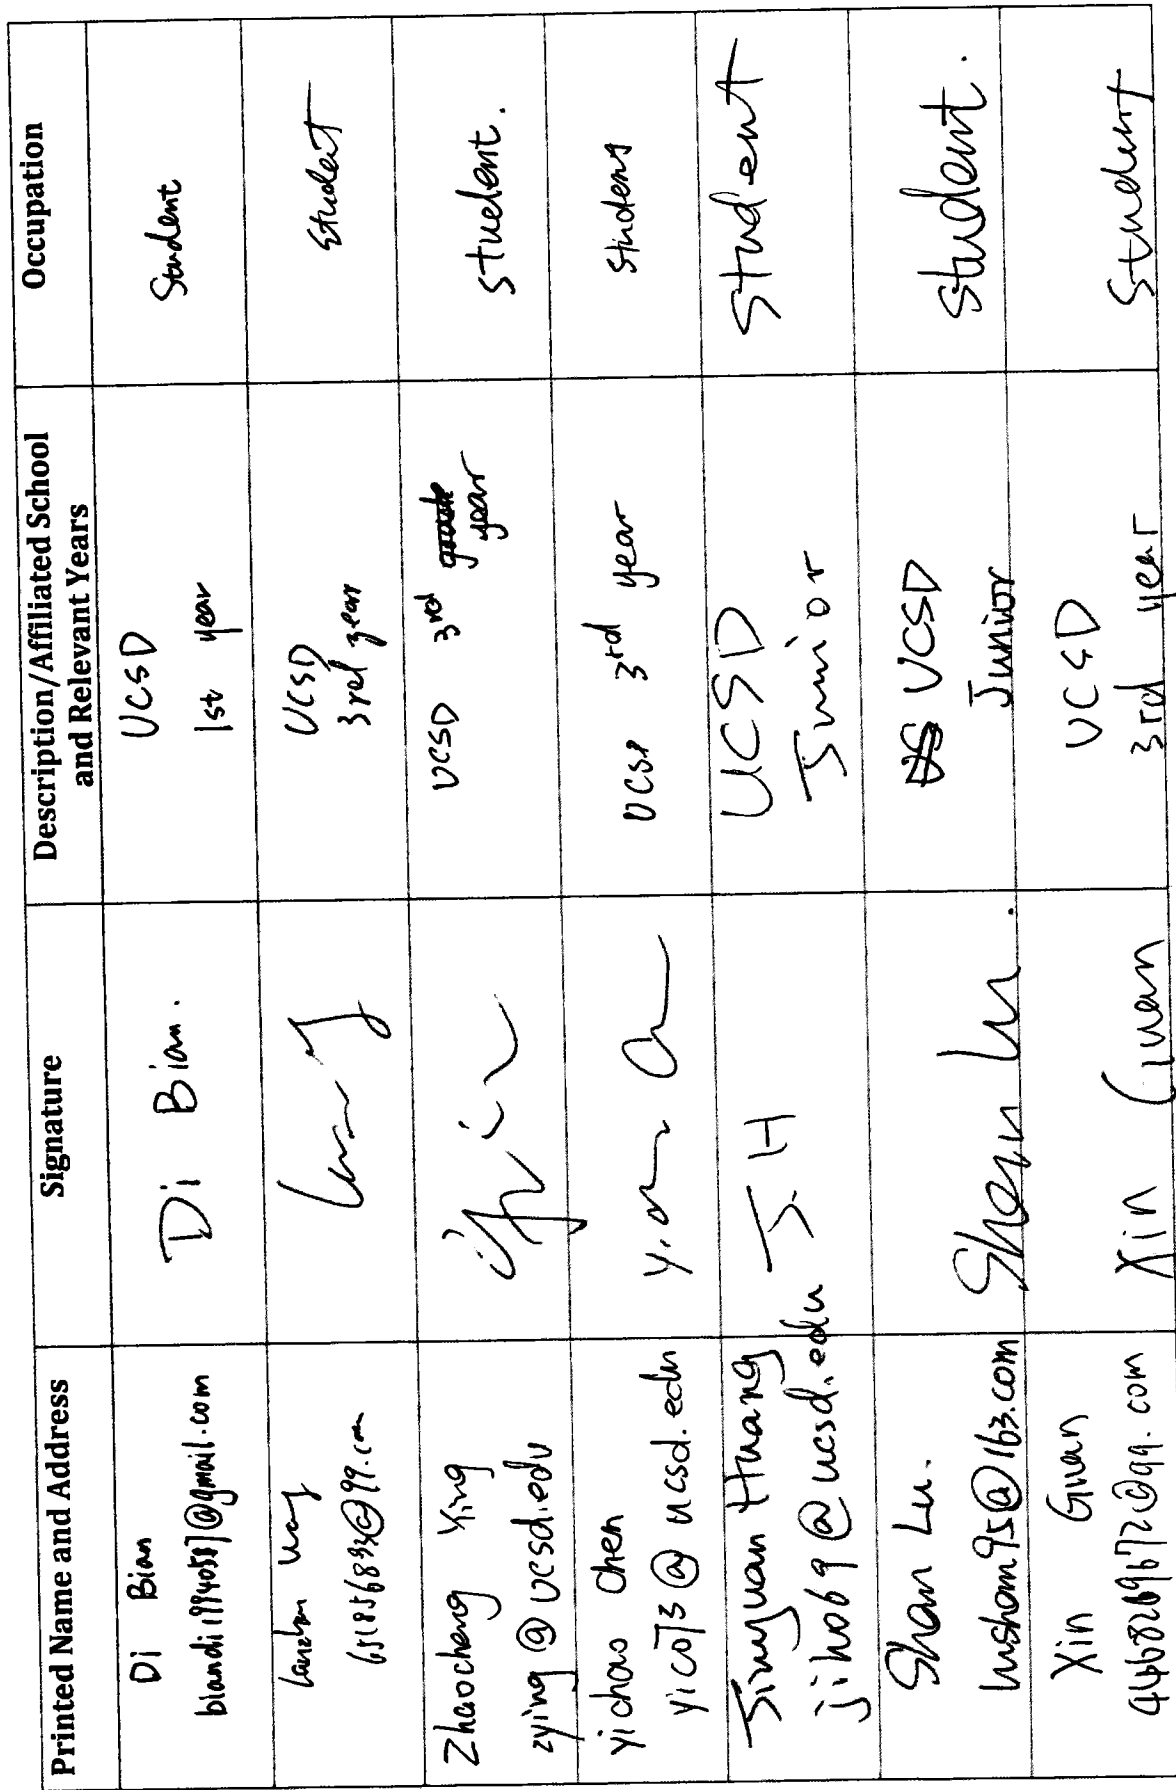 Printed Name and Address
Signature
Description/Affiliated School
and Relevant Years
Occupation
Di Bian
Di Bian.
UCSD
1st year
Student
UCSD
3rd year
Student
Zhaocheng Ying
zying@ucsd.edu
UCSD 3rd year
student.
yichao Chen
yic073@ucsd.edu
3rd year
Jinyuan Huang
jih069@ucsd.edu
J. H
UCSD
Junior
Student
Shan Lu.
lushan95@163.com
Shan Lu.
UCSD
Junior
Student.
Xin Guan
4468269672@qq.com
Xin Guan
UCSD
3rd year
Student